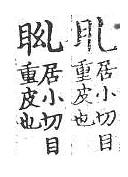 居小切目
重皮也
居小切目
重皮也